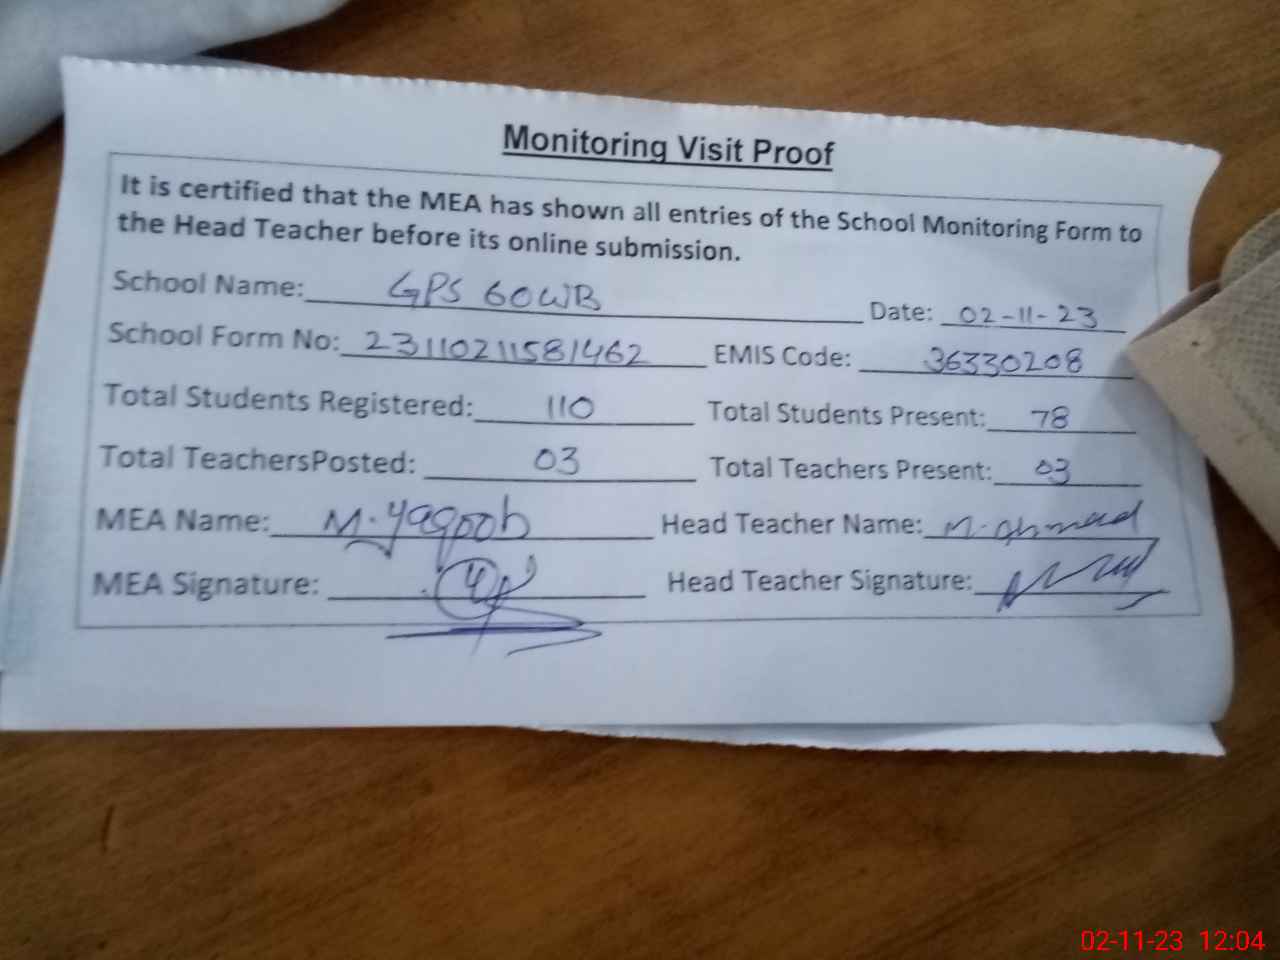 Monitoring Visit Proof
It is certified that the MEA has shown all entries of the School Monitoring Form to
the Head Teacher before its online submission.
School Name: GPS 60WB Date: 02-11-23
School Form No: 23110211581462 EMIS Code: 36330208
Total Students Registered: 110 Total Students Present: 78
Total TeachersPosted: 03 Total Teachers Present: 03
MEA Name: M. Yaqoob Head Teacher Name: M. Ahmad
MEA Signature: Head Teacher Signature:
02-11-23 12:04